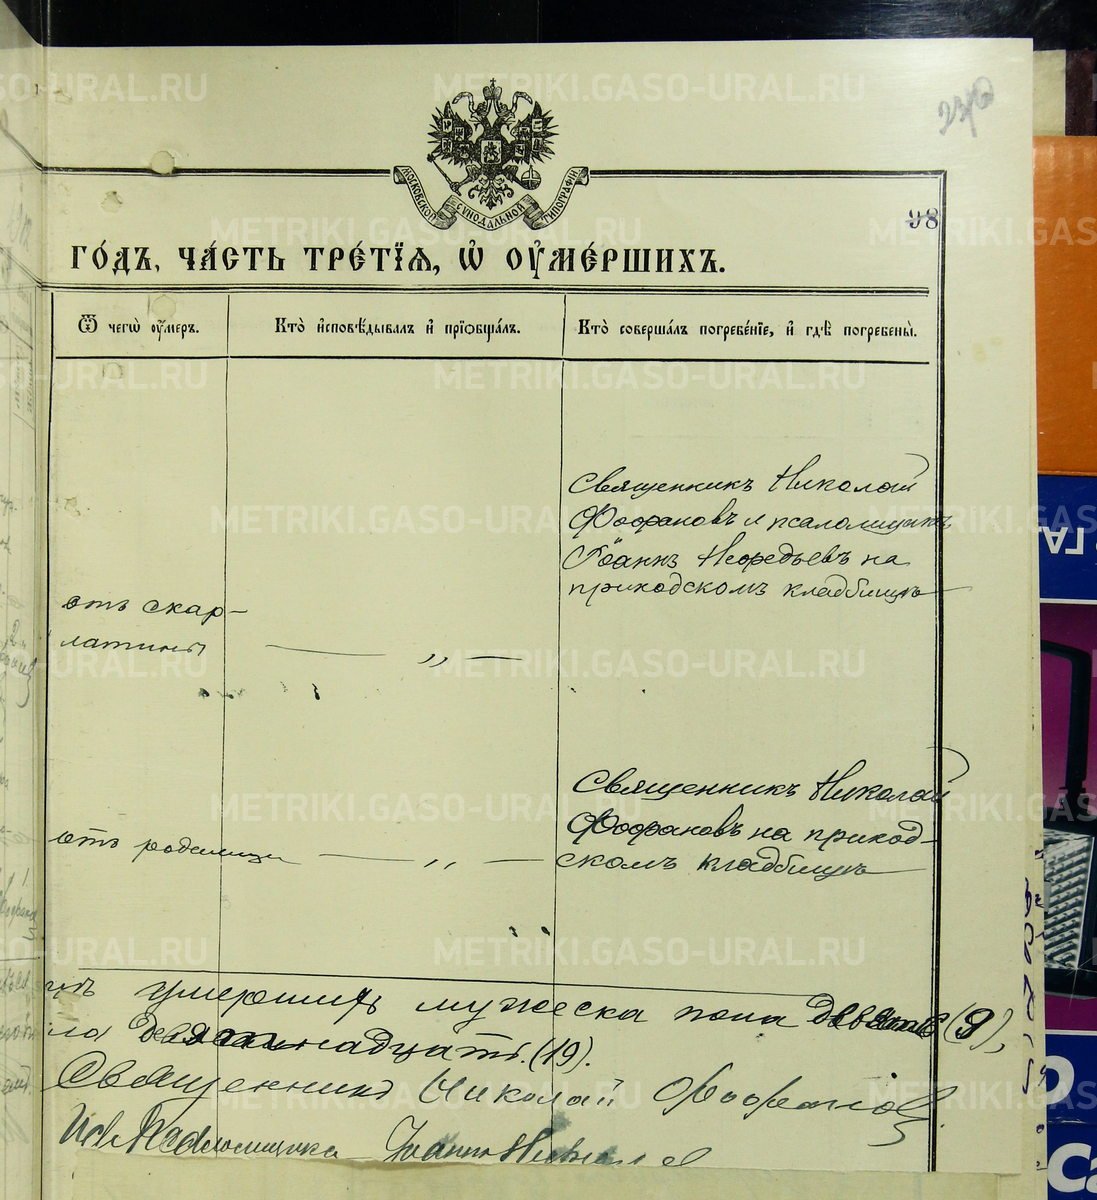 METRIKI.GASO-URAL.RU
МОСКОВСКОЙ СѴНОДАЛЬНОЙ ТИПОГРАФІИ
98
ГО́ДЪ, ЧА́СТЬ ТРЕ́ТЇѦ, Ѡ҆ ОУ҆МЕ́РШИХЪ.
Ѿ чегѡ̀ оу҆́меръ.
Кто̀ и҆сповѣ́дывалъ и҆ прїѡбща́лъ.
Кто̀ соверша́лъ погребе́нїе, и҆ гдѣ̀ погребены̀.
Священникъ Николай
Фофановъ и псаломщикъ
Іоаннъ на
приходскомъ кладбищѣ
отъ скар-
латины
— „ —
Священникъ Николай
Фофановъ на приход-
скомъ кладбищѣ
отъ родимца
— „ —
умершихъ мужеска пола девять (9),
ла девятнадцать (19).
Священникъ Николай Фофановъ
Псаломщика Іоаннъ